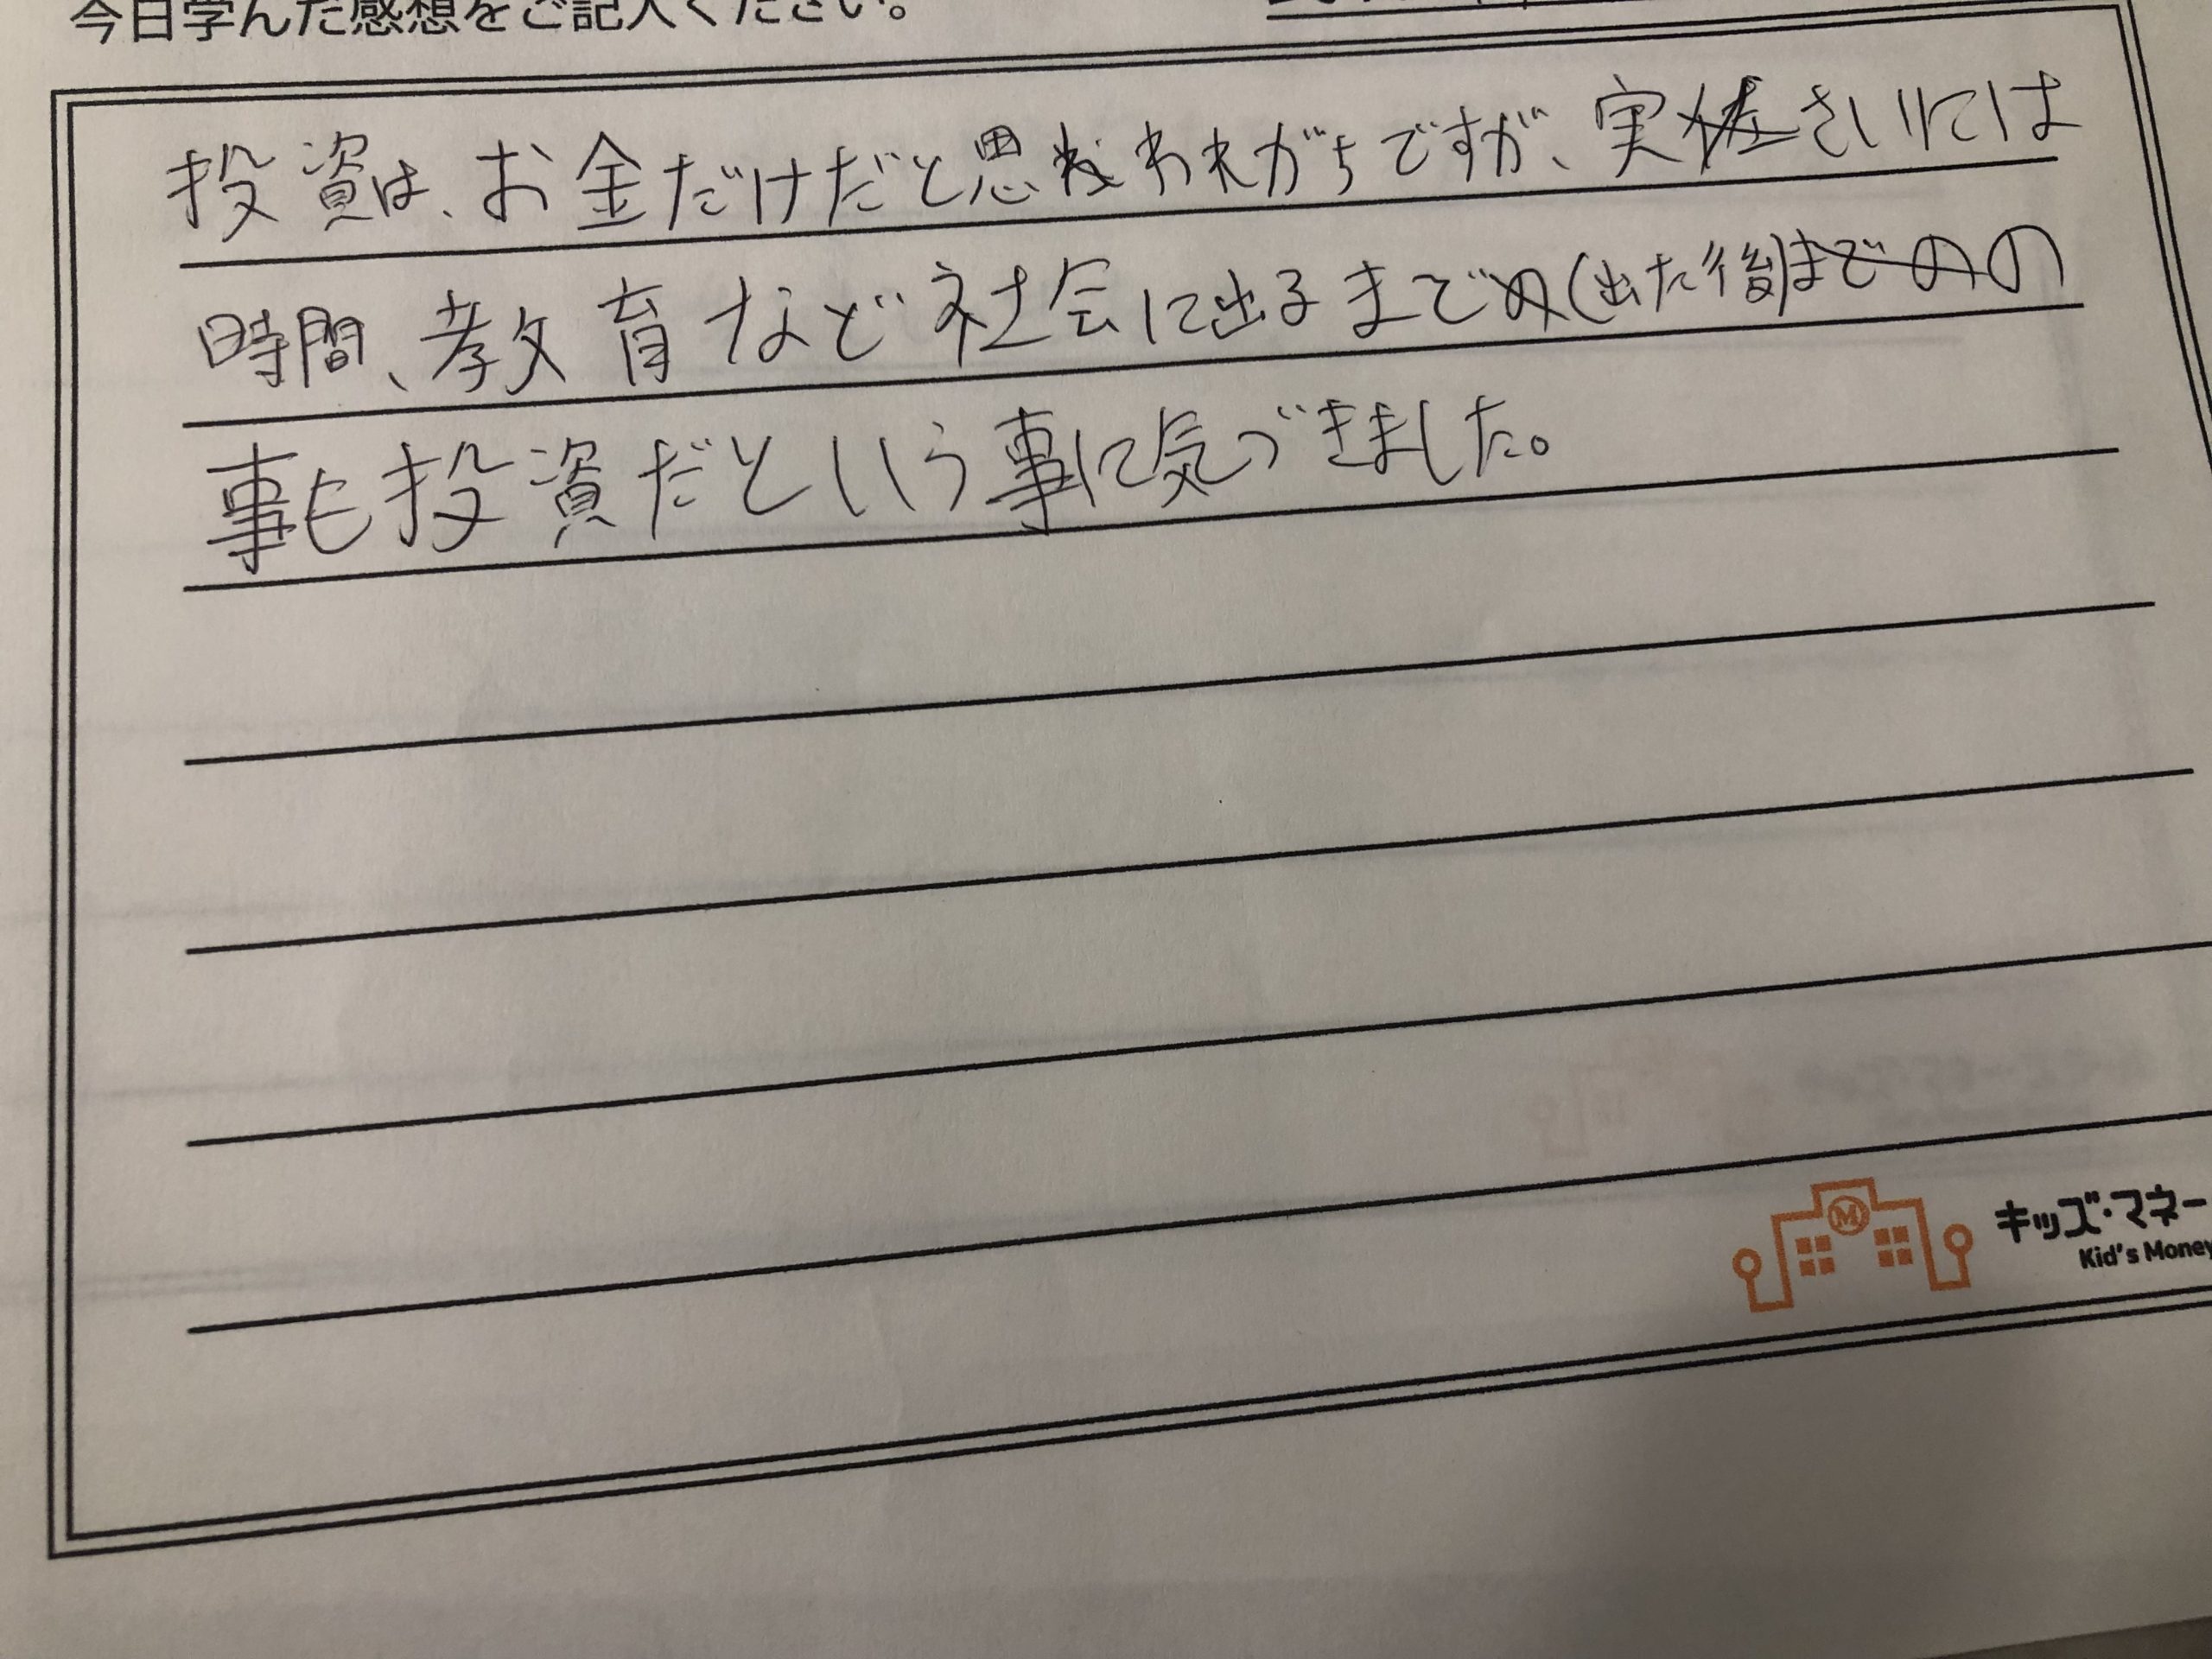 今日学んだ感想をご記入ください。
投資は、お金だけだと思われがちですが、実さいには
時間、教育など社会に出るまで(出た後)の
事も投資だという事に気づきました。
キッズ・マネー
Kid's Money